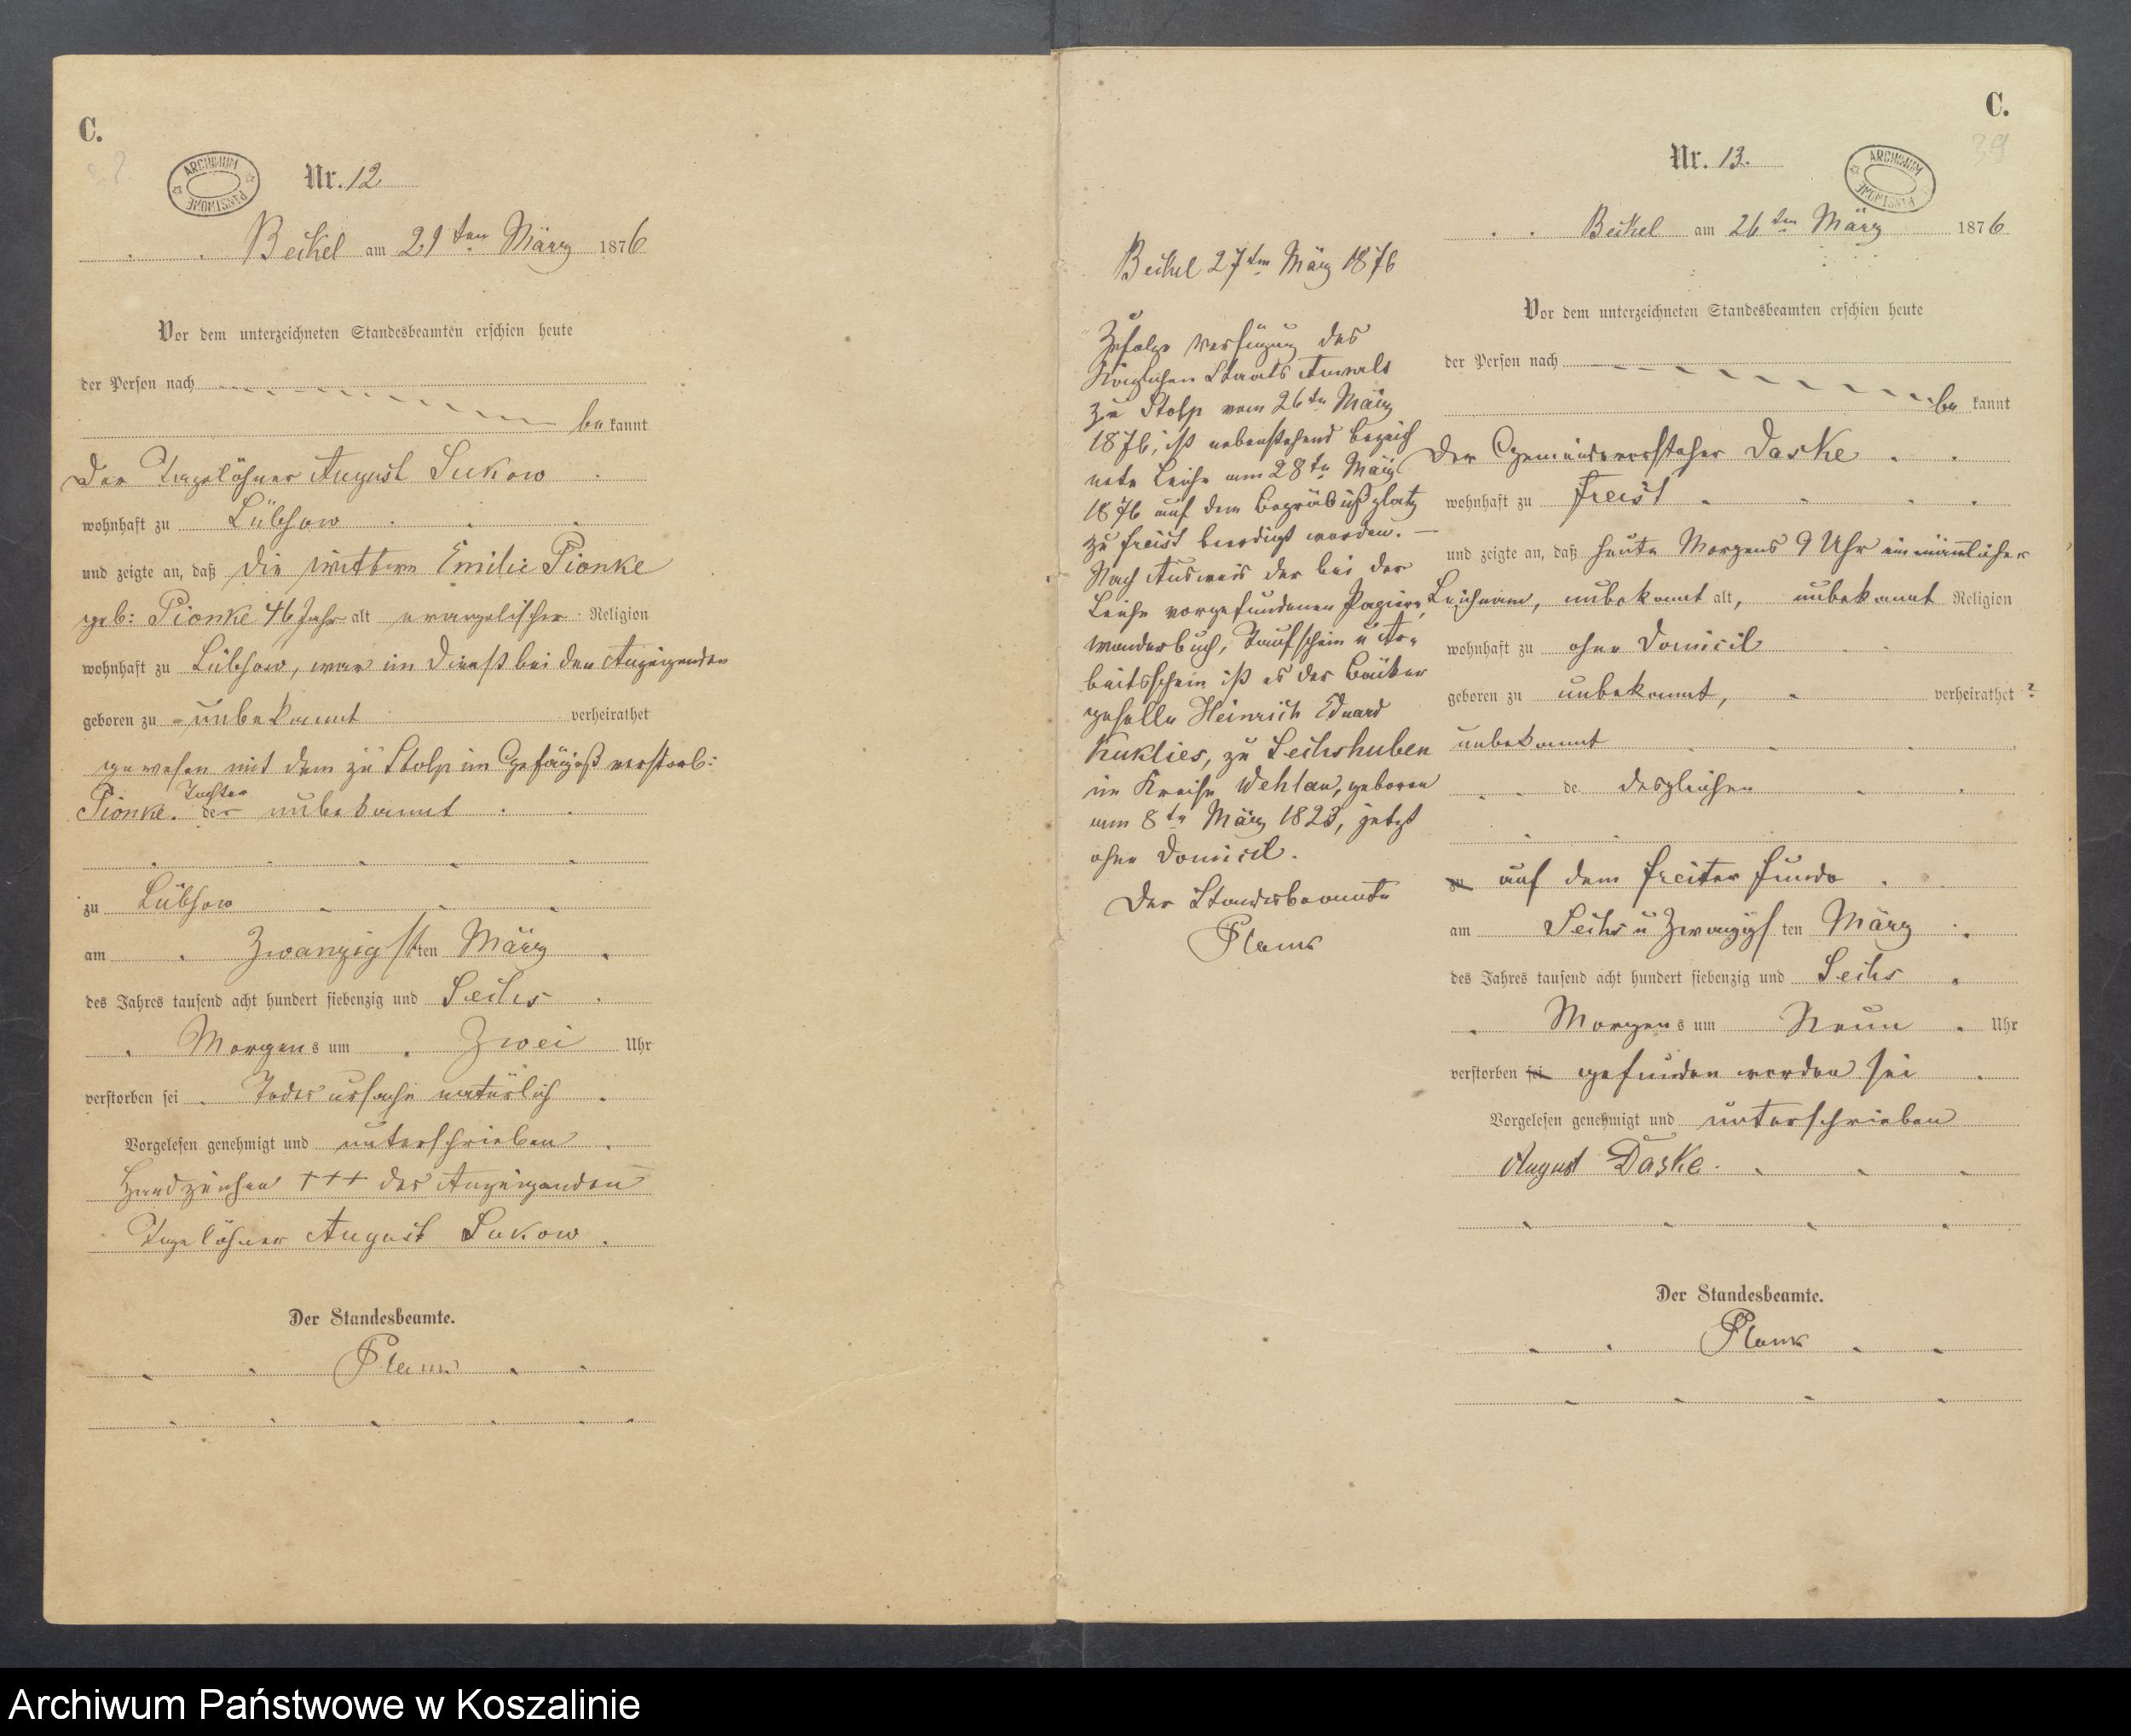 C.
ARCHIWUM PAŃSTWOWE
Nr. 12
Beckel am 21ten März 1876
Vor dem unterzeichneten Standesbeamten erschien heute
der Person nach
bekannt
Der Tagelöhner August Sukow
wohnhaft zu Lübsow
und zeigte an, daß die Wittwe Emilie Pionke
geb: Pionke 46 Jahr alt evangelischer Religion
wohnhaft zu Lübsow, war im Dienst bei den Anzeigenden
geboren zu unbekannt verheirathet
gewesen mit dem zu Stolp im Gefängniß verstorb:
Pionke. Tochter der unbekannt
zu Lübsow
am Zwanzigsten März
des Jahres tausend acht hundert siebenzig und Sechs
Morgens um Zwei Uhr
verstorben sei. Todesursache natürlich
Vorgelesen genehmigt und unterschrieben
Handzeichen +++ des Anzeigenden
Tagelöhner August Sukow.
Der Standesbeamte.
C.
39
Nr. 13.
ARCHIWUM PAŃSTWOWE
Beckel am 26ten März 1876
Vor dem unterzeichneten Standesbeamten erschien heute
der Person nach
bekannt
Der Gemeindevorsteher Daske
wohnhaft zu Freist
und zeigte an, daß heute Morgens 9 Uhr ein männlicher
Leichnam, unbekannt alt, unbekannt Religion
wohnhaft zu ohne Domicil
geboren zu unbekannt, verheirathet?
unbekannt
de desgleichen
zu auf dem Freiter Fundo
am Sechs u Zwanzigsten März
des Jahres tausend acht hundert siebenzig und Sechs
Morgens um Neun Uhr
verstorben sei gefunden worden sei
Vorgelesen genehmigt und unterschrieben
August Daske.
Der Standesbeamte.
Beckel 27ten März 1876
Zufolge Verfügung des
Königlichen Staats Anwalts
zu Stolp vom 26ten März
1876, ist nebenstehend bezeich
nete Leiche am 28ten März
1876 auf dem Begräbnißplatz
zu Freist beerdigt worden. —
Nach Ausweis der bei der
Leiche vorgefundenen Papiere,
Wanderbuch, Taufschein u Ar-
beitsschein ist es der Bäcker
geselle Heinrich Eduard
Kuklies, zu Sechshuben
im Kreise Wehlau, geboren
am 8ten März 1823, jetzt
ohne Domicil.
Der Standesbeamte
Archiwum Państwowe w Koszalinie